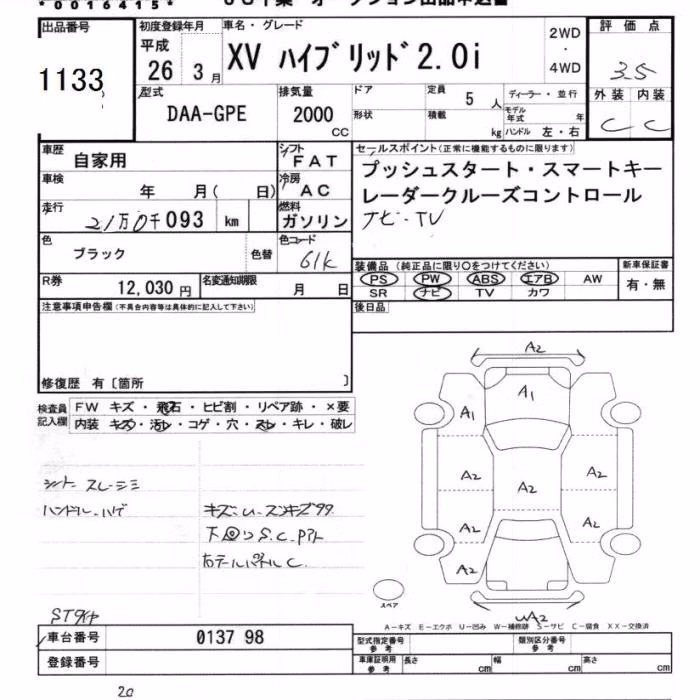 *00016415*
出品番号
1133
初度登録年月
平成
26 3月
車名・グレード
XV ハイブリッド2.0i
2WD
・
4WD
評価点
3.5
外装 内装
C C
型式
DAA-GPE
排気量
2000
CC
ドア
形状
定員
5 人
積載
kg
ディーラー・並行
モデル年式 年
ハンドル 左・右
車歴
自家用
シフト
FAT
車検
年 月( 日)
冷房
AC
走行
21万0千093 km
燃料
ガソリン
色
ブラック
色替
色コード
61K
R券
12,030円
名変通知期限
月 日
セールスポイント(正常に機能するものに限ります)
プッシュスタート・スマートキー
レーダークルーズコントロール
ナビ・TV
装備品(純正品に限り○をつけてください)
PS PW ABS エアB AW
SR ナビ TV カワ
新車保証書
有・無
後日品
注意事項申告欄(不具合内容等は具体的に記入して下さい)
修復歴 有〔箇所 〕
検査員記入欄
FW キズ・飛石・ヒビ割・リペア跡・×要
内装 キズ・汚レ・コゲ・穴・スレ・キレ・破レ
シート スレ・シミ
ハンドル・ハゲ
下回りS.C.
C
A2
A1
A1
A2
A2
A2
A2
A2
A2
A2
スペア
A-キズ E-エクボ U-凹み W-補修跡 S-サビ C-腐食 XX-交換済
車台番号
0137 98
登録番号
型式指定番号
参考
類別区分番号
参考
車庫証明用
参考
長さ cm
幅 cm
高さ cm
20